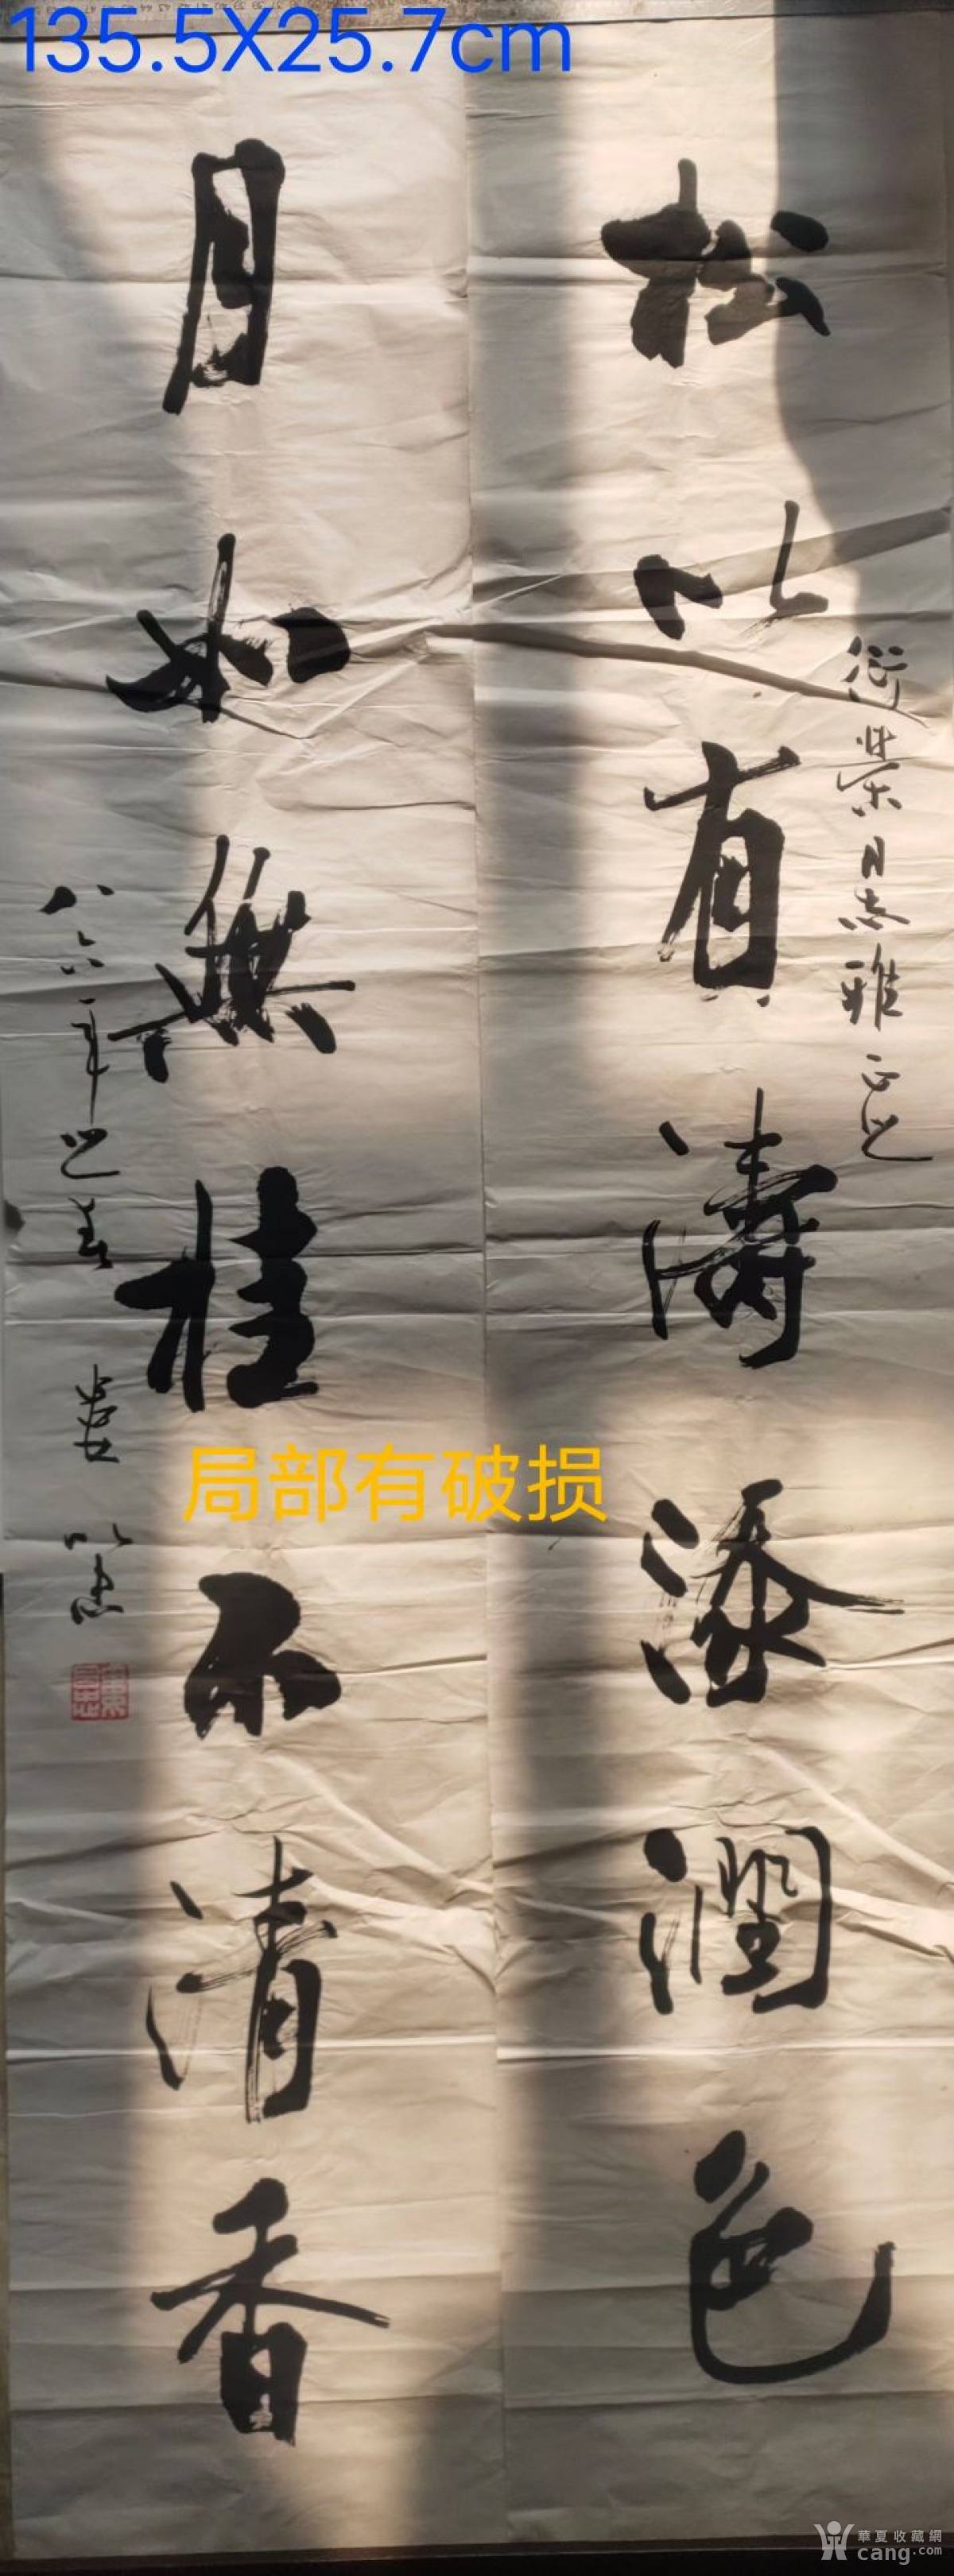 135.5X25.7cm
松以有濤添潤色
衍榮同志雅正
月如無桂不清香
八六年之春
局部有破损
華夏收藏網
cang.com